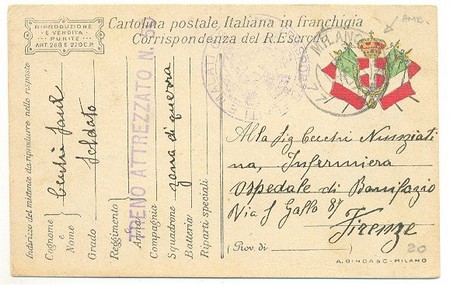 RIPRODUZIONE
E VENDITA
PUNITE
ART. 268 E 270 C.P.
Cartolina postale Italiana in franchigia
Corrispondenza del R. Esercito
MILANO
TRENO ATTREZZATO N.
Indirizzo del mittente da riprodurre nelle risposte
Cognome
e
Nome
Grado Soldato
Reggimento
Arma
Compagnia
Squadrone zona di guerra
Batteria
Riparti speciali
Alla Sig Cecchi Nunziati
na, Infermiera
Ospedale di Bonifazio
Via S Gallo 87
Firenze
(Prov. di )
20
A. GINDASC - MILANO